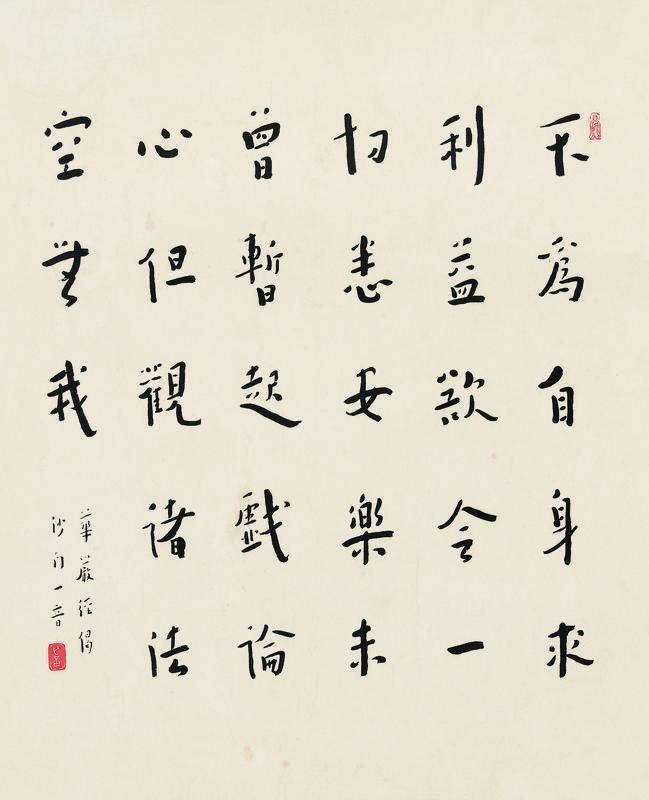 不爲自身求
利益欲令一
切悉安樂未
曾暫起戲論
心但觀諸法
空無我
華嚴經偈
沙門一音